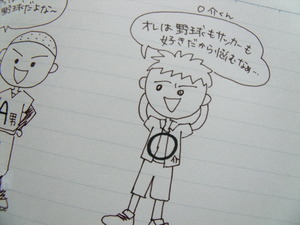 野球だよなー
A
男
○介くん
オレは野球もサッカーも
好きだから悩むなぁ…
○
介